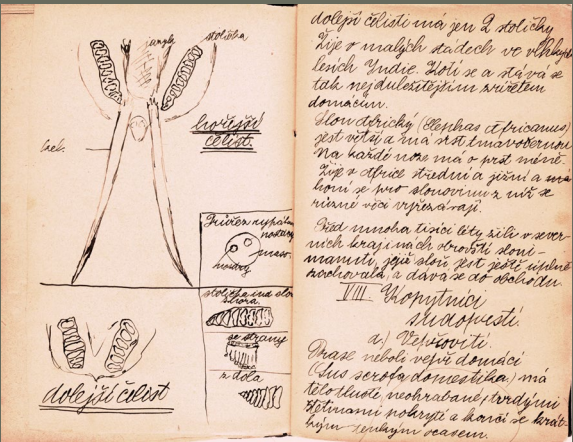 stolička
hořejší
čelist.
Průřez
nozdry
svaly
stolička ind. slona
shora.
se strany
z dola
dolejší čelist
dolejší čelisti má jen 2 stoličky
Žije v malých stádech ve
lesích Indie. Krotí se a stává se
tak nejdůležitějším zvířetem
domácím.
Slon africký (Elephas africanus)
jest větší a má srst tmavočernou
Na každé noze má o prst méně.
Žije v Africe střední a jižní a
honí se pro slonovinu z níž se
různé věci vyřezávají.
Před mnoha tisíci léty žili v sever-
ních krajinách obrovští sloni -
mamuti, jejíž slon jest ještě úplně
zachovalá, a dává se do obchodu.
VIII. Kopytníci
sudoprstí.
a.) Vepřovití.
Prase neboli vepř domácí
(Sus scrofa domestika) má
tělo tlusté, neohrabané, tvrdými
štětinami pokryté a končí se krát-
kým tenkým ocasem.